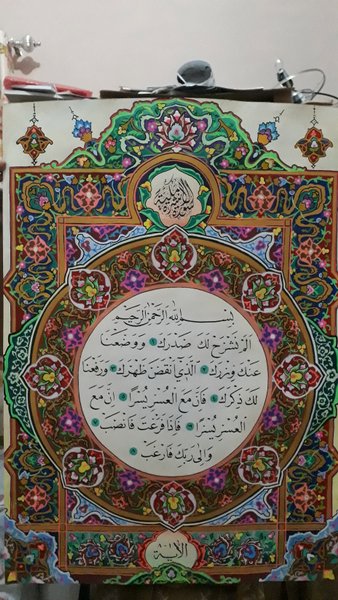 بسم الله الرحمن الرحيم
الم نشرح لك صدرك ١ ووضعنا
عنك وزرك ٢ الذي انقض ظهرك ٣ ورفعنا
لك ذكرك ٤ فان مع العسر يسرا ٥ ان مع
العسر يسرا ٦ فاذا فرغت فانصب ٧
والى ربك فارغب ٨